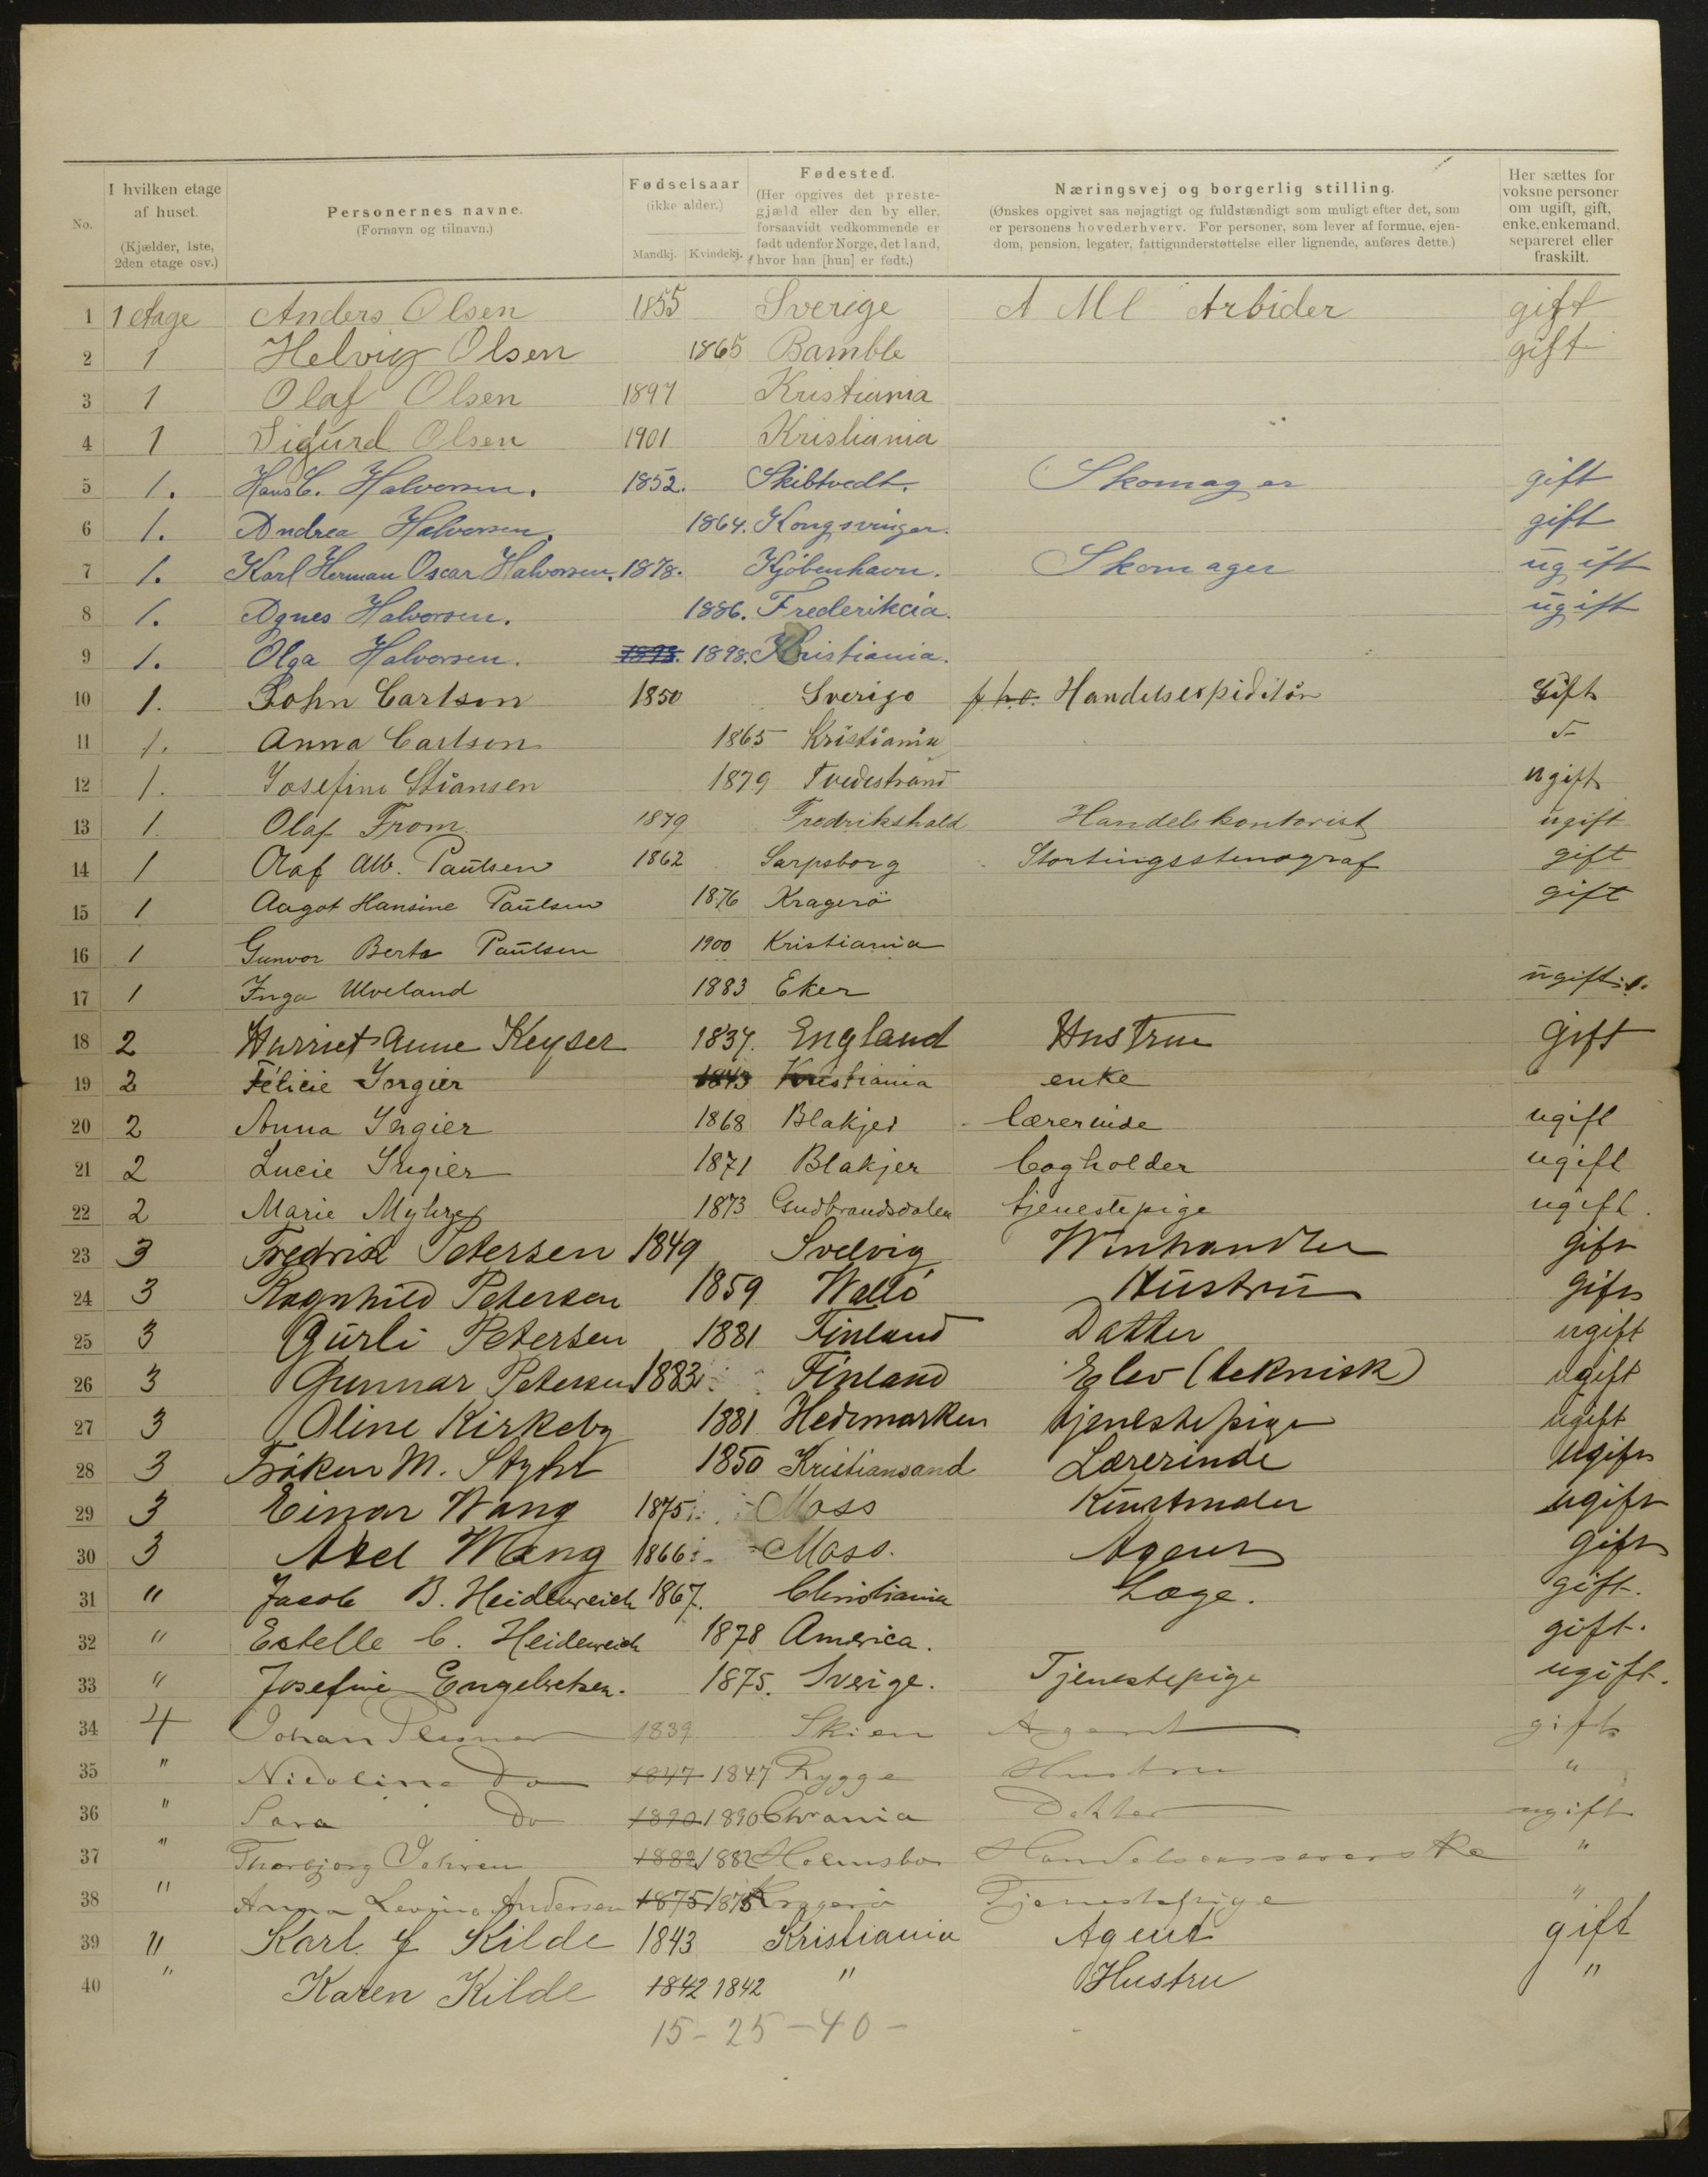 No.
I hvilken etage af huset. (Kjælder, 1ste, 2den etage osv.)
Personernes navne. (Fornavn og tilnavn.)
Fødselsaar (ikke alder.) Mandkj. Kvindekj.
Fødested. (Her opgives det prestegjæld eller den by eller, forsaavidt vedkommende er født udenfor Norge, det land, hvor han [hun] er født.)
Næringsvej og borgerlig stilling. (Ønskes opgivet saa nøjagtigt og fuldstændigt som muligt efter det, som er personens hovederhverv. For personer, som lever af formue, ejendom, pension, legater, fattigunderstøttelse eller lignende, anføres dette.)
Her sættes for voksne personer om ugift, gift, enke, enkemand, separeret eller fraskilt.
1 1 etage Anders Olsen 1855 Sverige A Ml Arbider gift
2 1 Helvig Olsen 1865 Bamble gift
3 1 Olaf Olsen 1897 Kristiania
4 1 Sigurd Olsen 1901 Kristiania
5 1. Hans C. Halvorsen. 1852. Skibtvedt. Skomager gift
6 1. Andrea Halvorsen. 1864. Kongsvinger. gift
7 1. Karl Herman Oscar Halvorsen. 1878. Kjöbenhavn. Skomager ugift
8 1. Agnes Halvorsen. 1886. Frederikcia. ugift
9 1. Olga Halvorsen. 1898. 1898. Kristiania.
10 1. John Carlson 1850 Sverige Handelsexpiditör Gift
11 1. Anna Carlson 1865 Kristiania
12 1. Josefine Stiansen 1879 Tvedestrand ugift
13 1. Olaf From 1879 Fredrikshald Handelskontorist ugift
14 1 Olaf Alb. Paulsen 1862 Sarpsborg Stortingsstenograf gift
15 1 Aagot Hansine Paulsen 1876 Kragerö gift
16 1 Gunvor Berta Paulsen 1900 Kristiania
17 1 Inga Ulveland 1883 Eker ugift
18 2 Harriet Anne Keyser 1837. England Hustru gift
19 2 Félicie 1843 Kristiania enke
20 2 Anna 1868 Blakjer lærerinde ugift
21 2 Lucie 1871 Blakjer bogholder ugift
22 2 Marie Myhre 1873 Gudbrandsdalen tjenestepige ugift.
23 3 Fredrik Petersen 1849 Svelvig Vinhandler gift
24 3 Ragnhild Petersen 1859 Hustru gift
25 3 Gurli Petersen 1881 Finland Datter ugift
26 3 Gunnar Petersen 1883 Finland Elev (teknisk) ugift
27 3 Oline Kirkeby 1881 Hedemarken tjenestepige ugift
28 3 Fröken M. 1850 Kristiansand Lærerinde ugift
29 3 Einar Wang 1875 Moss Kunstmaler ugift
30 3 Axel Wang 1866 Moss. Agent gift
31 " Jacob B. Heidenreich 1867. Christiania Læge. gift.
32 " Estelle C. Heidenreich 1878 America. gift.
33 " Josefine Engebretsen. 1875. Sverige. Tjenestepige ugift.
34 4 Johan 1839 Skien Agent gift
35 " Nicoline do 1847 1847 Rygge Hustru "
36 " Sara do 1890 1890 Chrania Datter ugift
37 " Thorbjørg 1882 1882 Holmsbo "
38 " Anna Andersen 1875 1875 Kragerö Tjenestepige "
39 " Karl J Kilde 1843 Kristiania Agent gift
40 " Karen Kilde 1842 1842 " Hustru "
15 - 25 - 40 -